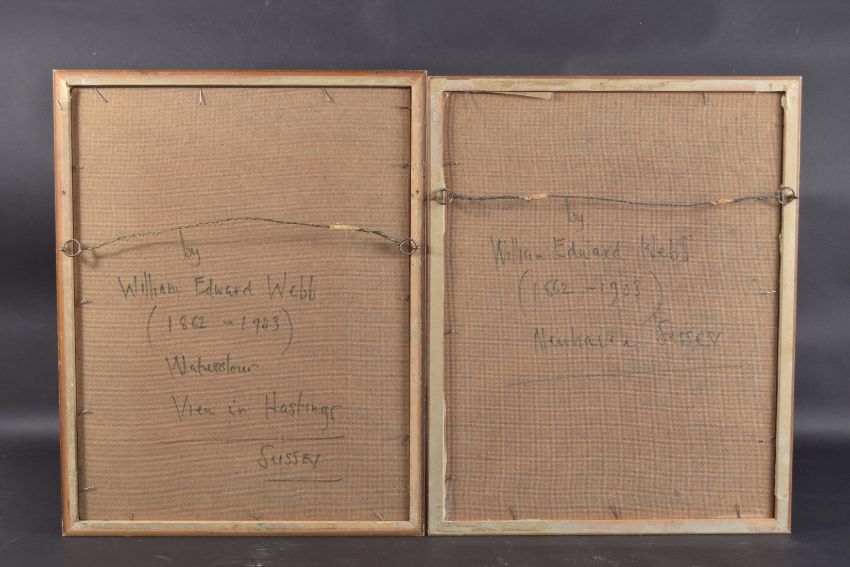 by
William Edward Webb
(1862 - 1903)
Watercolour
View in Hastings
Sussex
by
William Edward Webb
(1862 - 1903)
Newhaven Sussex